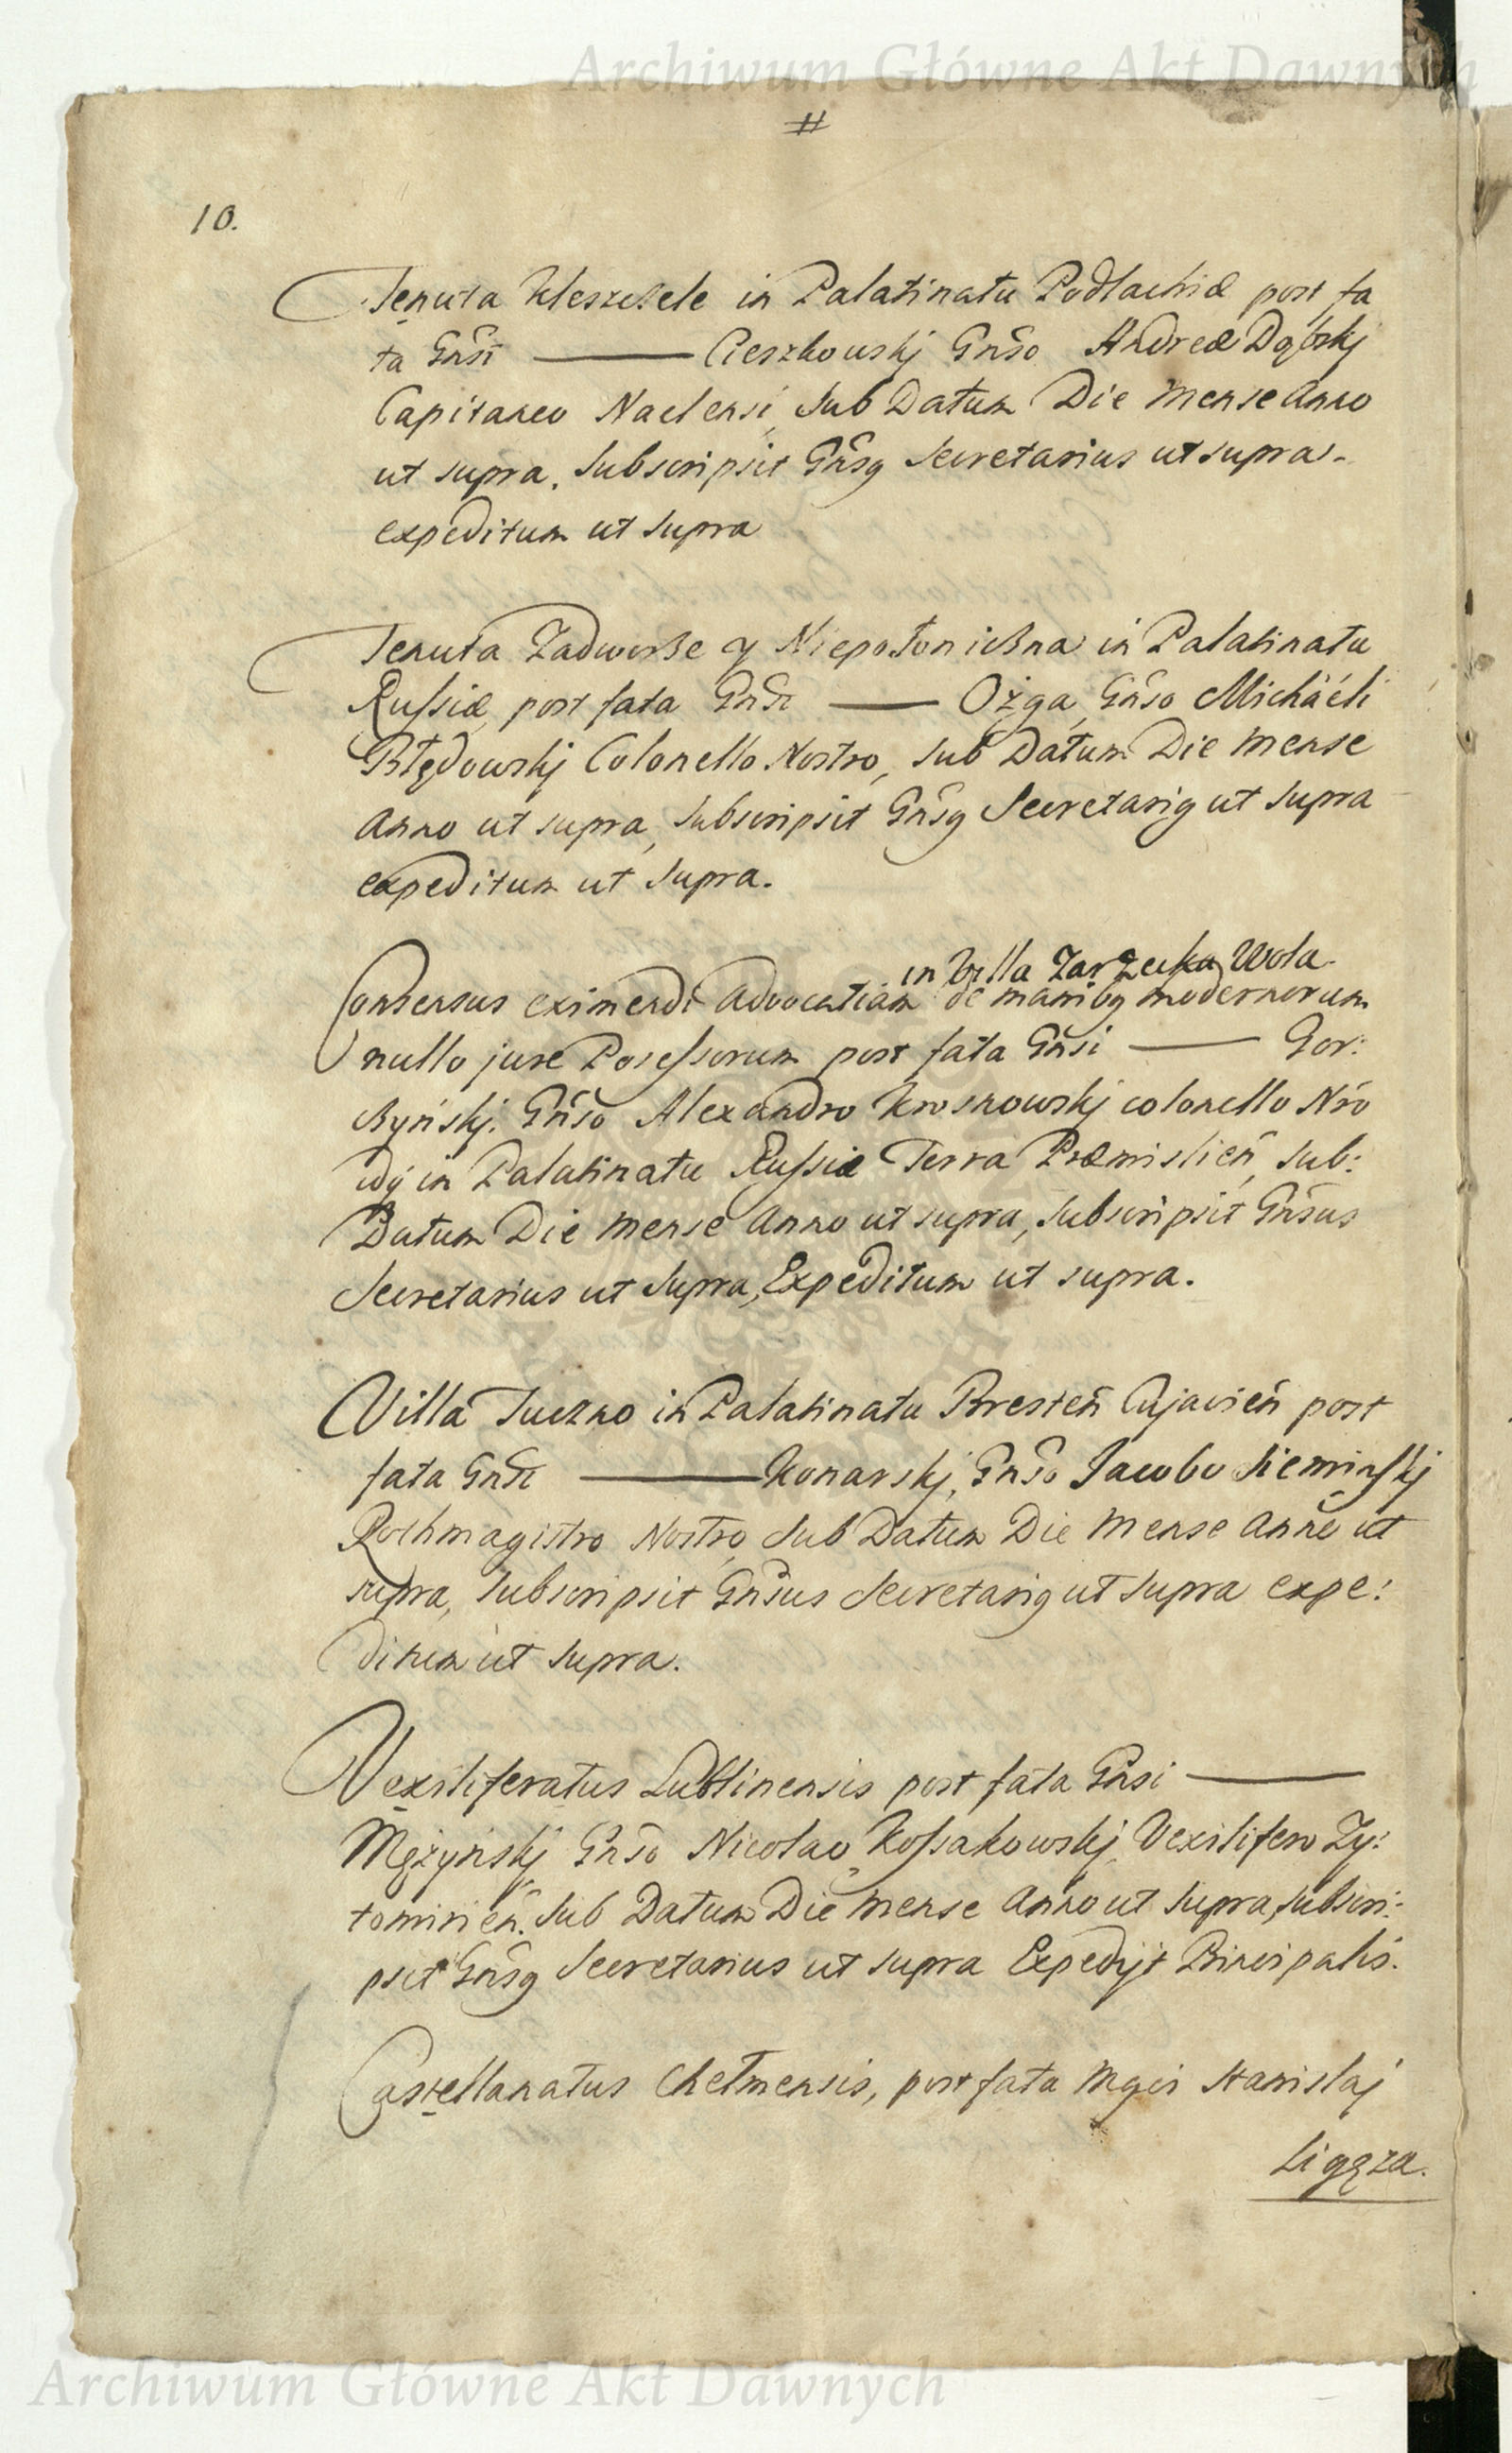 Archiwum Główne Akt Dawnych
#
10.
Tenuta Kleszczele in Palatinatu Podlachiæ post fa
ta Gnsi — Cieszkowskj Gnso Andreæ Dąbskj
Capitaneo Naclensi, Sub Datum Die Mense Anno
ut supra, Subscripsit Gnsq Secretarius ut supra.
expeditum ut supra
Tenuta Zadworże y Niepołoniczna in Palatinatu
Russiæ, post fata Gnsi — Ożga, Gnso Michaeli
Błędowskj Colonello Nostro, Sub Datum Die Mense
Anno ut supra, Subscripsit Gnsq Secretariq ut Supra
expeditum ut Supra.
in Villa Zarzecka Wola
Consensus eximendi Advocatiam de manibq modernorum
nullo jure Possessorum post fata Gnsi — Gor:
czyńskj. Gnso Alexandro Krosnowskj colonello Nro
in Palatinatu Russiæ Terra Præmislien, Sub:
Datum Die Mense Anno ut supra, Subscripsit Gnsus
Secretarius ut Supra, Expeditum ut supra.
Villa Tuczno in Palatinatu Bresten Cujavien post
fata Gnsi — Konarskj, Gnso Jacobo Sieminskj
Rothmagistro Nostro, Sub Datum Die Mense Anno ut
supra, Subscripsit Gnsus Secretariq ut Supra expe:
ditum ut Supra.
Vexiliferatus Lublinensis post fata Gnsi —
Mężyńskj Gnso Nicolao Kossakowskj, Vexilifero Zy:
tomirien. Sub Datum Die Mense Anno ut Supra, Subscri:
psit Gnsq Secretarius ut supra Expedijt Principalis.
Castellanatus Chełmensis, post fata Mgci Stanislaj
Ligęza.
Archiwum Główne Akt Dawnych